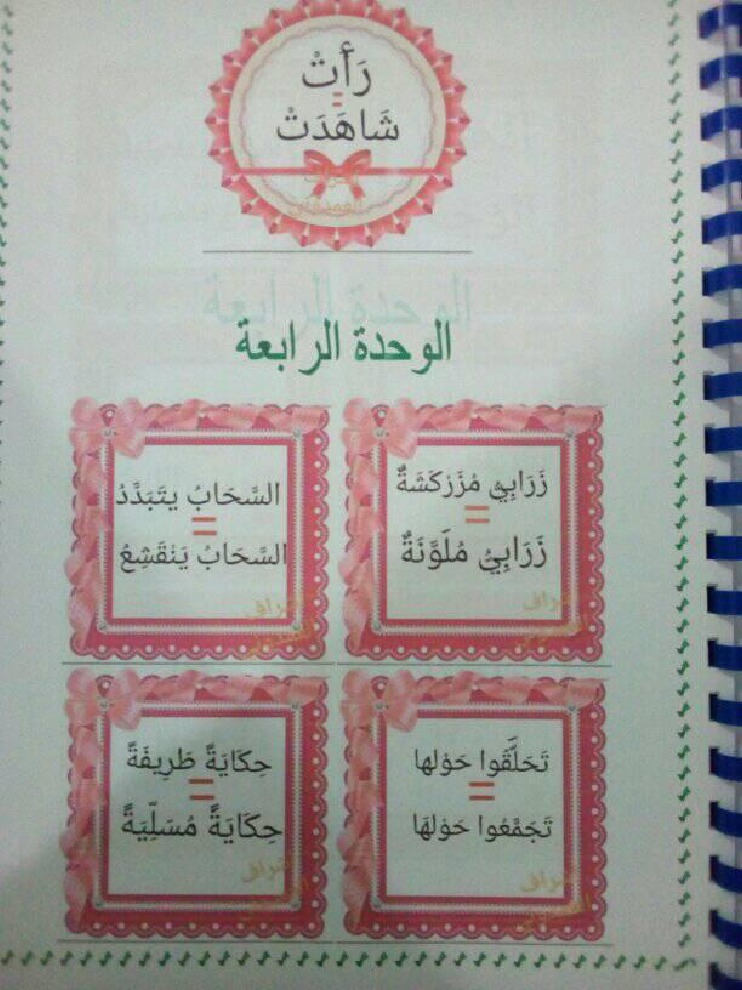 رَأَتْ
=
شَاهَدَتْ
الوحدة الرابعة
زَرَابِيُ مُزَرْكَشَةٌ
=
زَرَابِيُ مُلَوَّنَةٌ
السَّحَابُ يتَبَدَّدُ
=
السَّحَابُ يَنْقَشِعُ
تَحَلَّقُوا حَوْلها
=
تَجَمَّعُوا حَوْلهَا
حِكَايَةً طَرِيفَةً
=
حِكَايَةً مُسَلِّيَةً